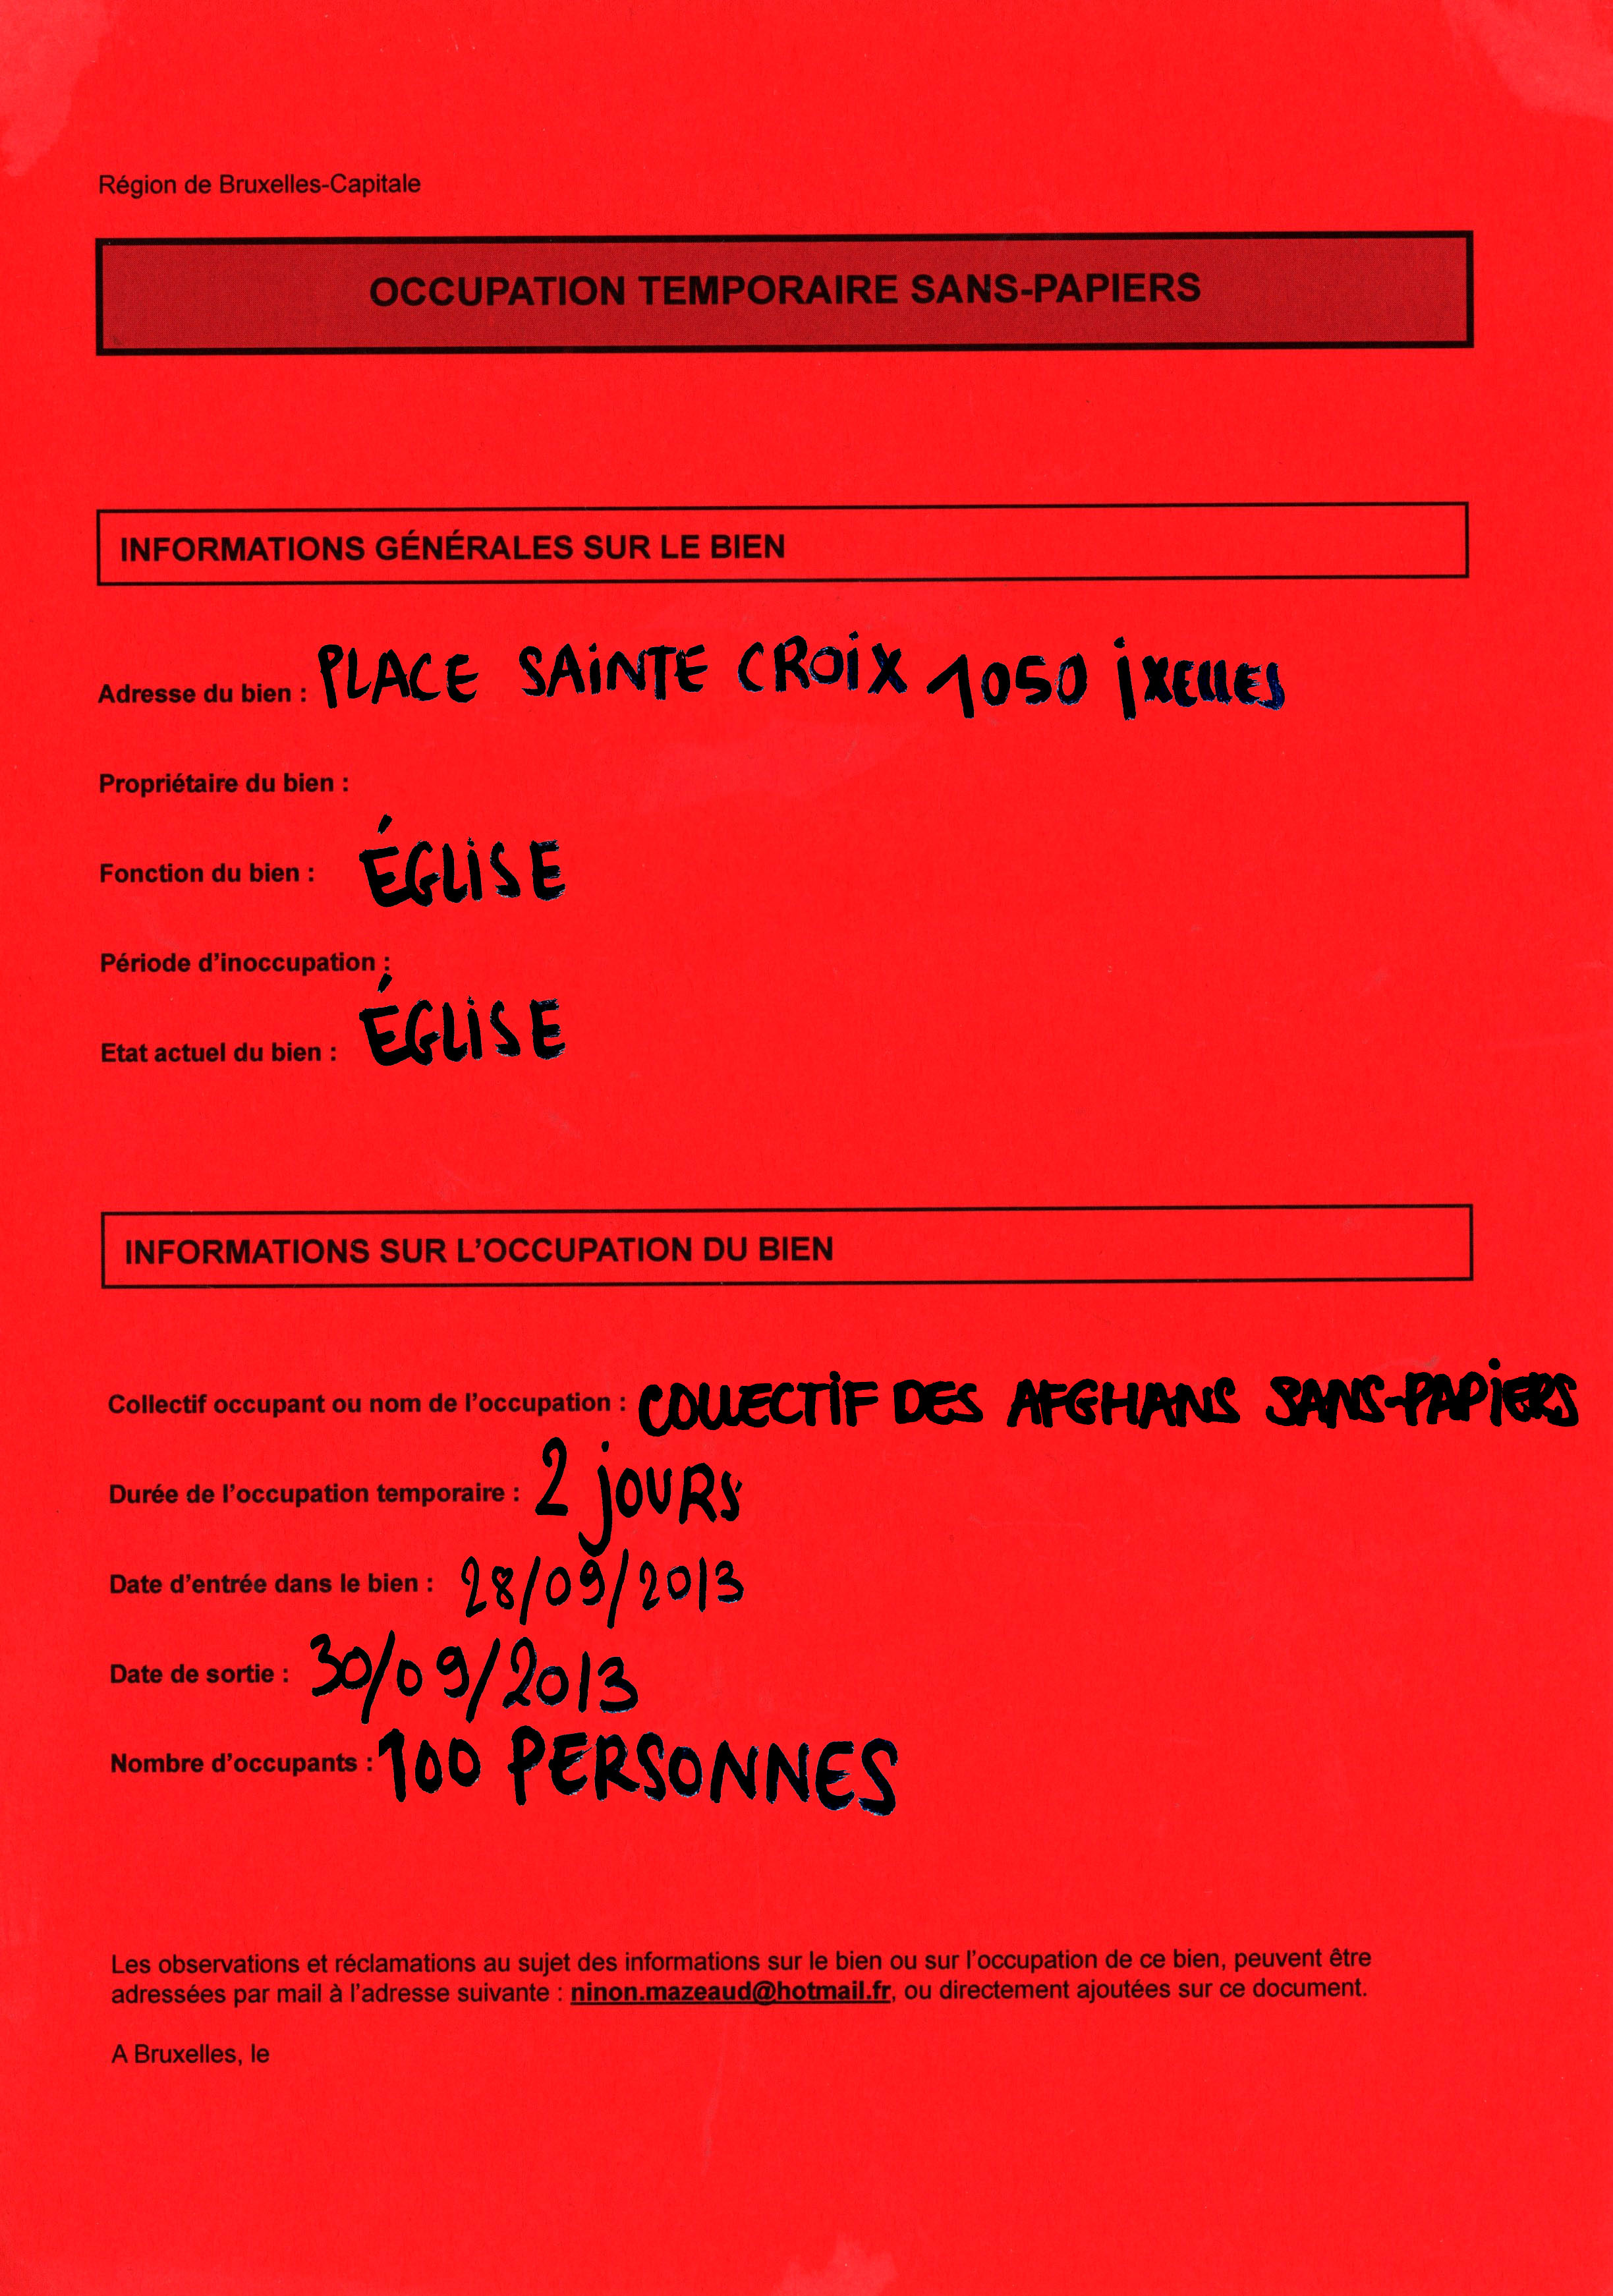 Région de Bruxelles-Capitale
OCCUPATION TEMPORAIRE SANS-PAPIERS
INFORMATIONS GÉNÉRALES SUR LE BIEN
Adresse du bien : PLACE SAINTE CROIX 1050 IXELLES
Propriétaire du bien :
Fonction du bien : ÉGLISE
Période d'inoccupation :
Etat actuel du bien : ÉGLISE
INFORMATIONS SUR L'OCCUPATION DU BIEN
Collectif occupant ou nom de l'occupation : COLLECTIF DES AFGHANS SANS-PAPIERS
Durée de l'occupation temporaire : 2 JOURS
Date d'entrée dans le bien : 28/09/2013
Date de sortie : 30/09/2013
Nombre d'occupants : 100 PERSONNES
Les observations et réclamations au sujet des informations sur le bien ou sur l'occupation de ce bien, peuvent être
adressées par mail à l'adresse suivante : ninon.mazeaud@hotmail.fr, ou directement ajoutées sur ce document.
A Bruxelles, le